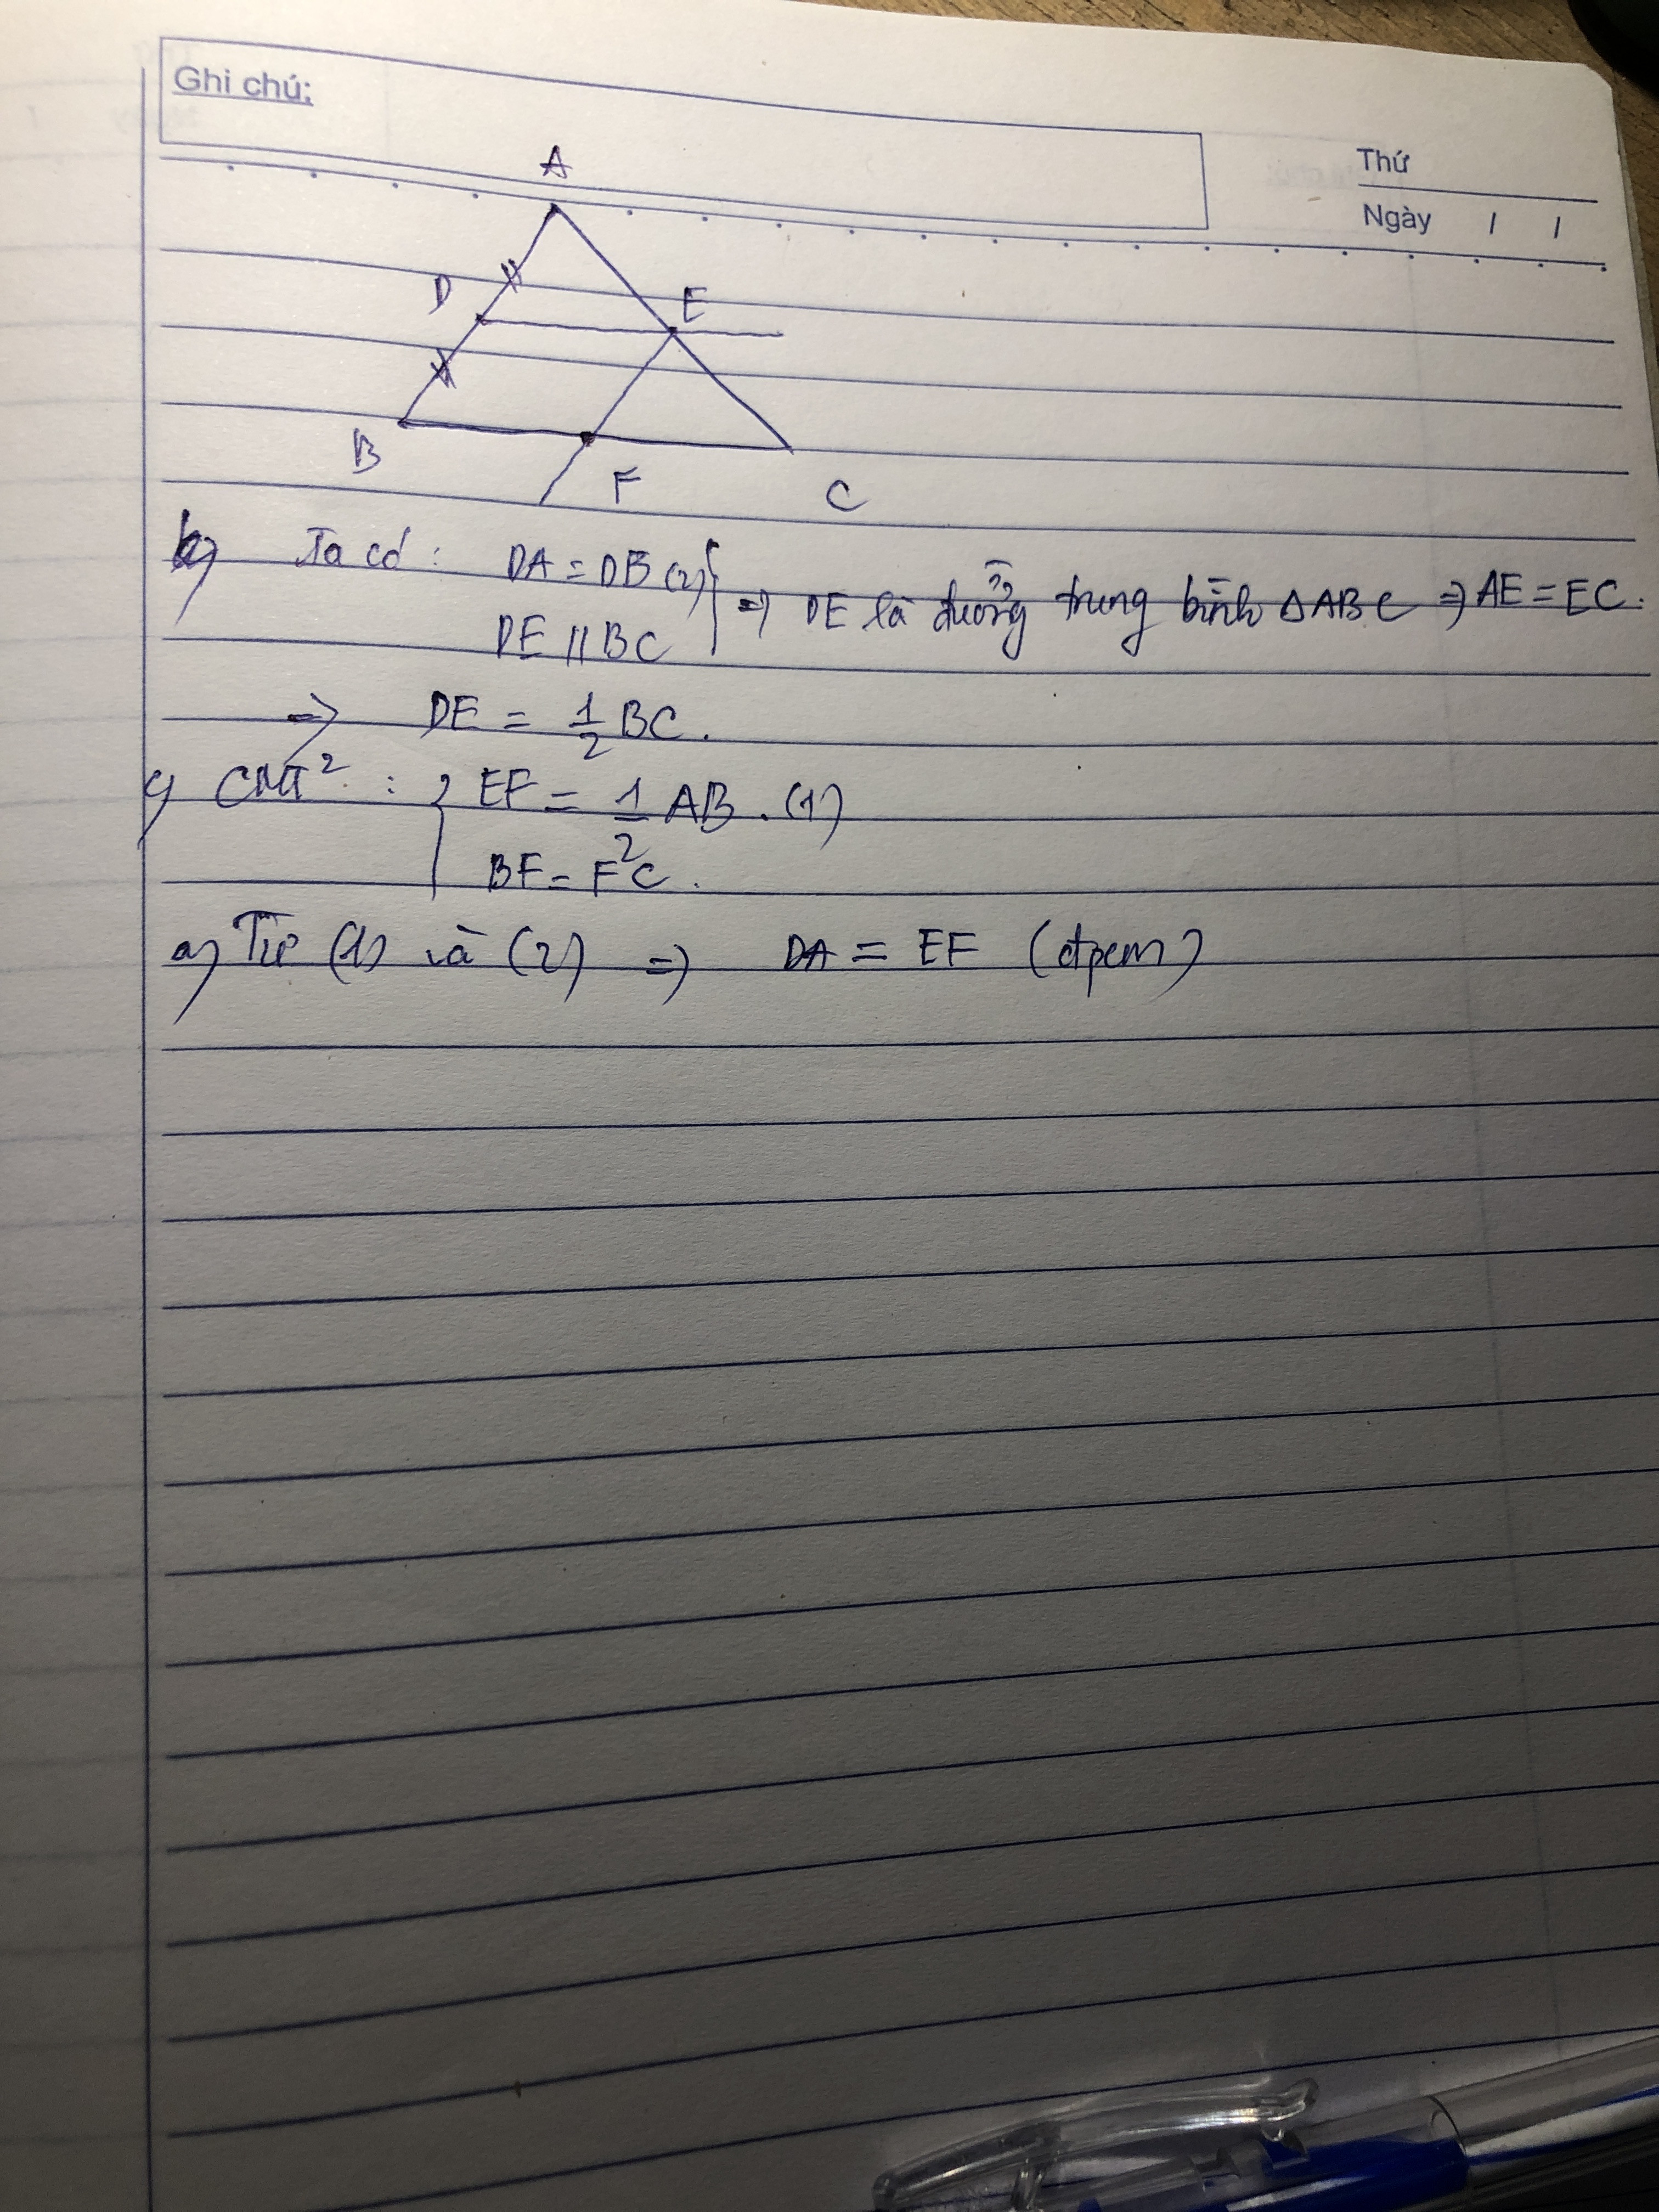 Ghi chú:
Thứ
Ngày / /
A
D
E
B
F
C
b) Ta có: DA = DB (2)
DE // BC
⇒ DE là đường trung bình ΔABC ⇒ AE = EC.
⇒ DE = 1/2 BC.
c) CMT² : EF = 1/2 AB. (1)
BF = FC.
a) Từ (1) và (2) ⇒ DA = EF (đpcm)